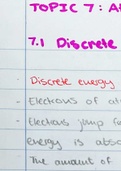 TOPIC 7: A
7.1 Discrete
- Discrete energy
- Electrons of at
- Electrons jump f
energy is abso
- The amount of